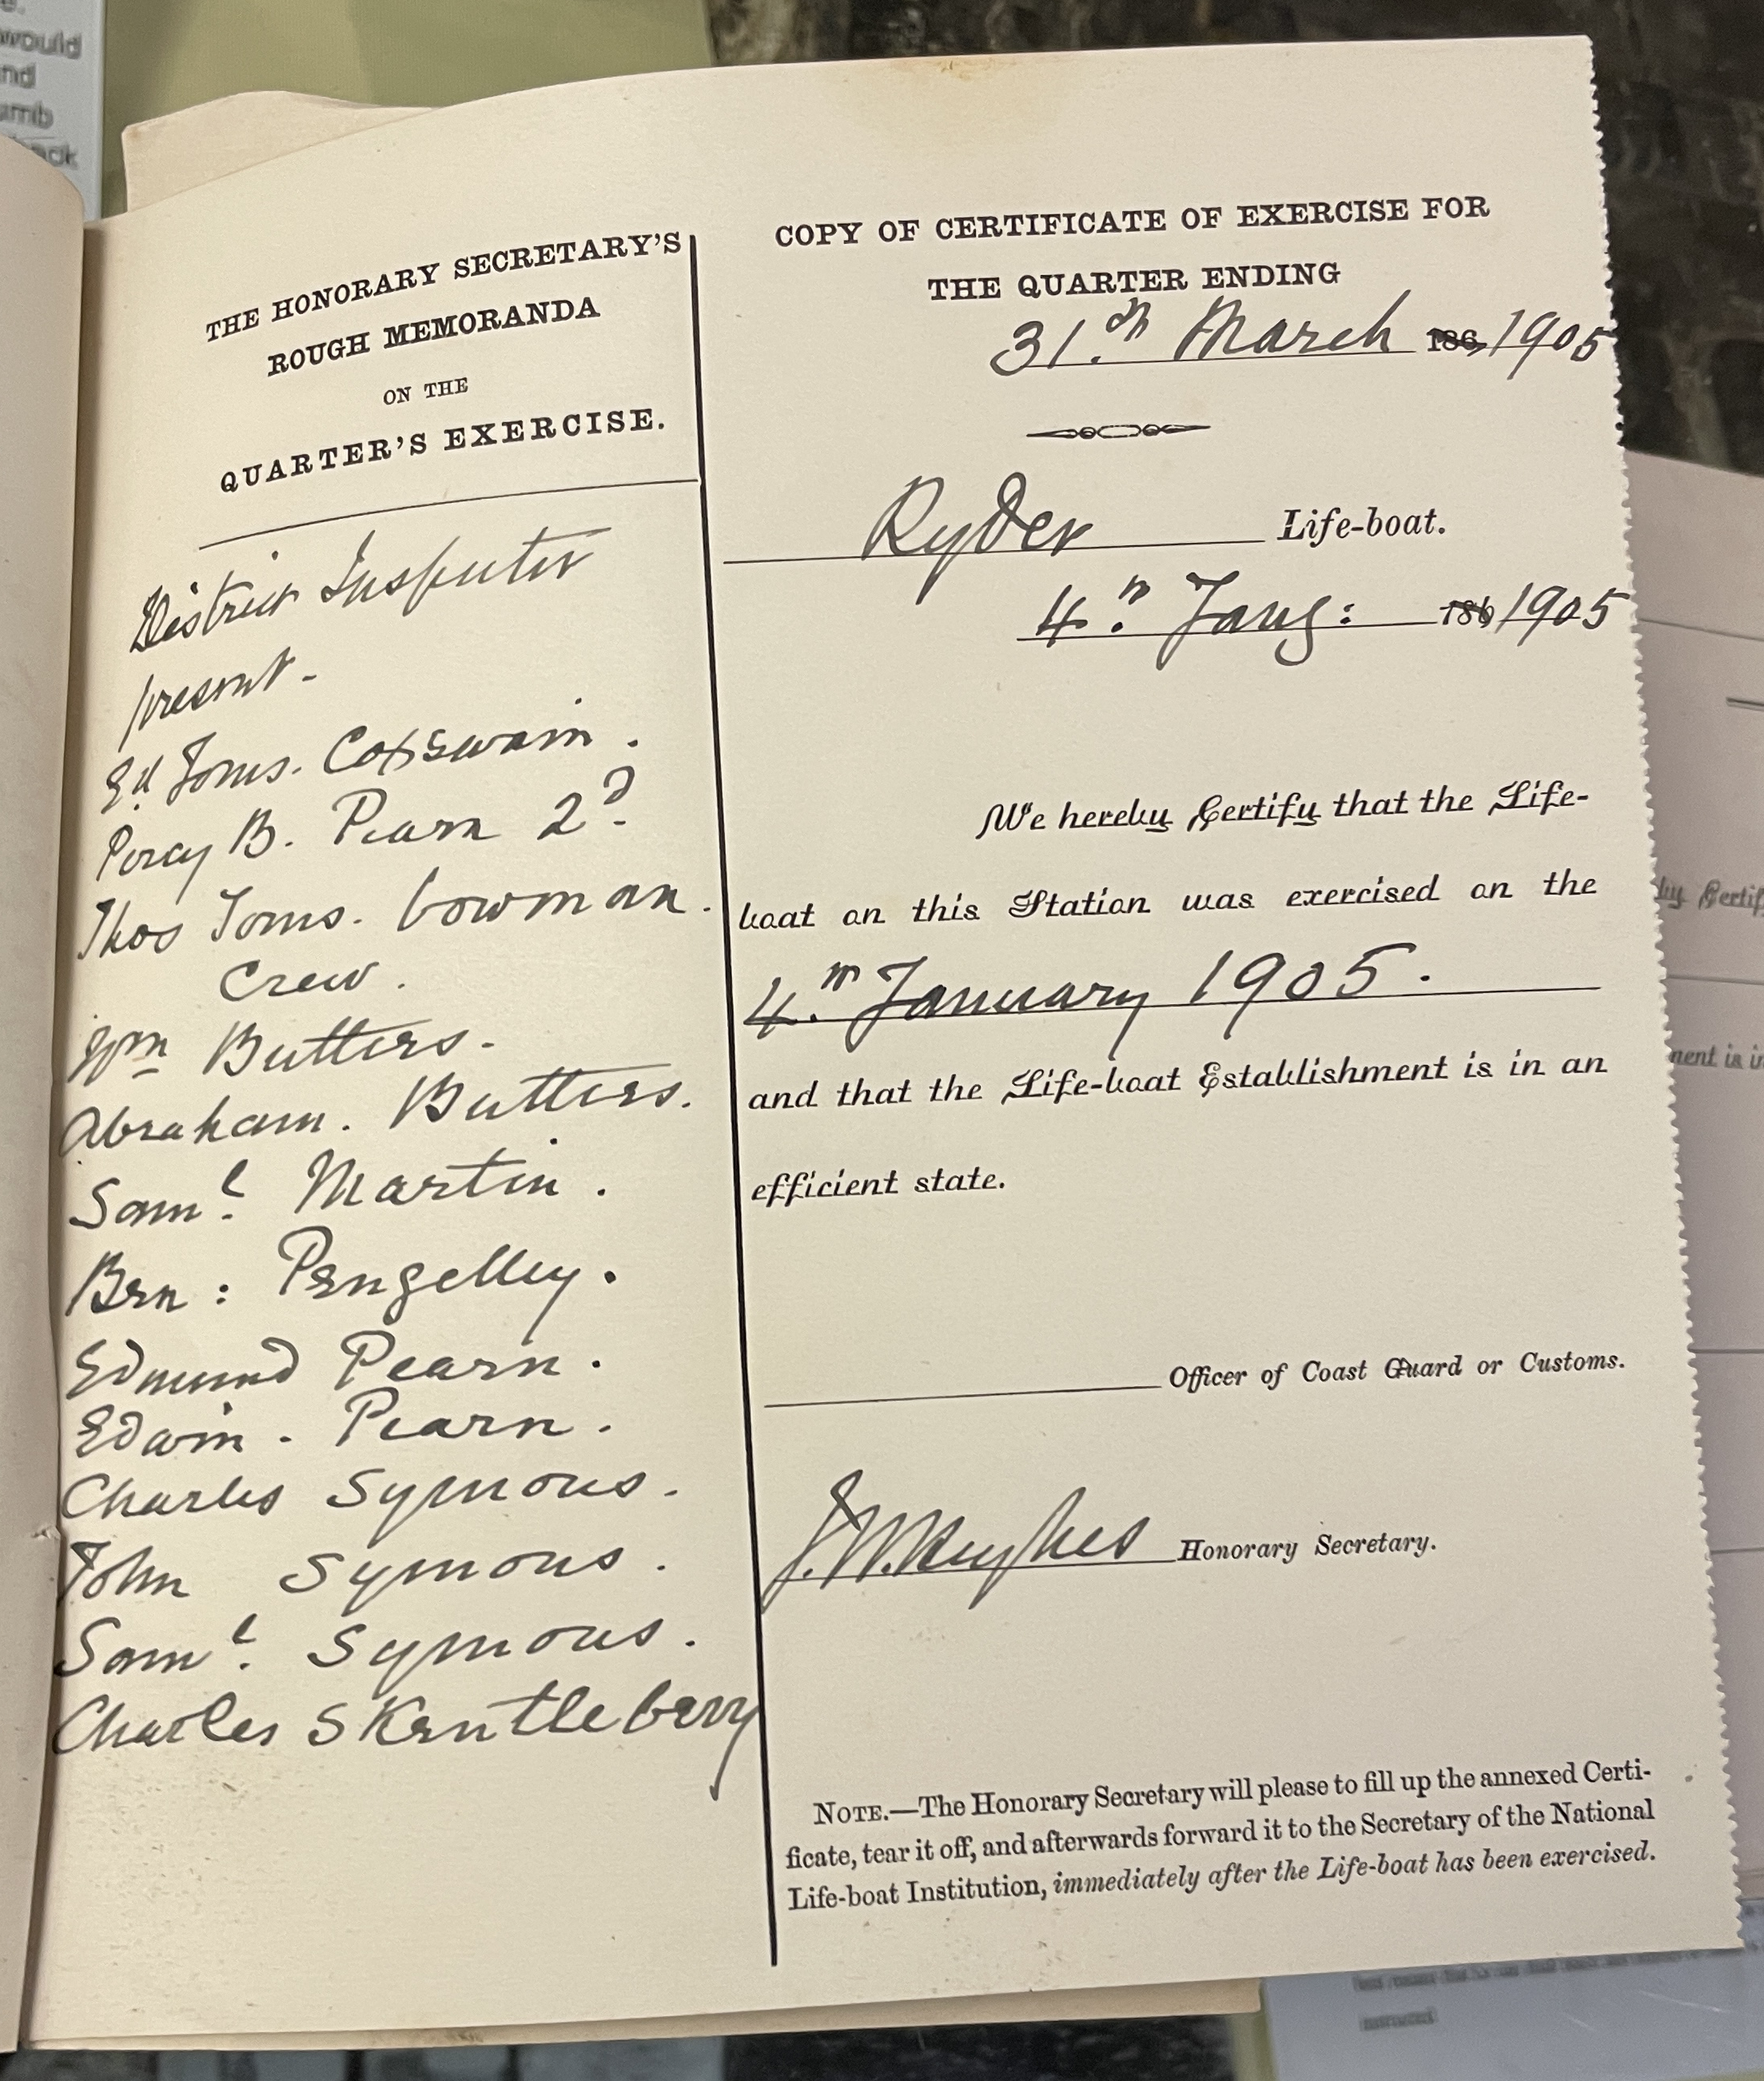 THE HONORARY SECRETARY'S
ROUGH MEMORANDA
ON THE
QUARTER'S EXERCISE.
District Inspector
present -
Ed Toms. Coxswain.
Percy B. Pearn 2d
Thos Toms. bowman.
Crew.
Wm Butters.
Abraham. Butters.
Saml. Martin.
Ben: Pengelley.
Edmund Pearn.
Edwin - Pearn.
Charles Symons.
John Symons.
Saml. Symons.
Charles Skentleberry
COPY OF CERTIFICATE OF EXERCISE FOR
THE QUARTER ENDING
31.th March 186 1905
Ryder Life-boat.
4.th Jany: 186 1905
We hereby Certify that the Life-
boat on this Station was exercised on the
4.th January 1905.
and that the Life-boat Establishment is in an
efficient state.
Officer of Coast Guard or Customs.
J. W. Hughes Honorary Secretary.
NOTE.—The Honorary Secretary will please to fill up the annexed Certi-
ficate, tear it off, and afterwards forward it to the Secretary of the National
Life-boat Institution, immediately after the Life-boat has been exercised.
would